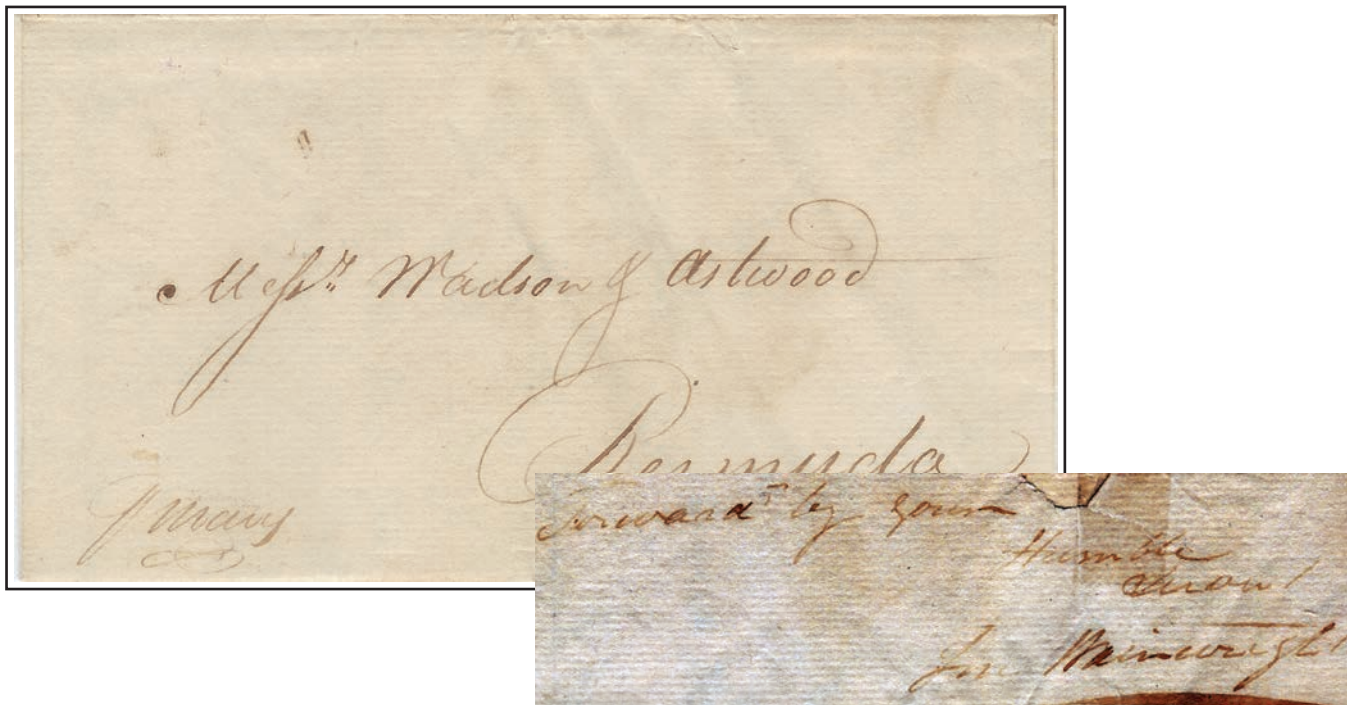 Messrs. Wadson & Astwood
Bermuda
p Mary
Forwardd by your
Humble
Servant
Jno Wainwright